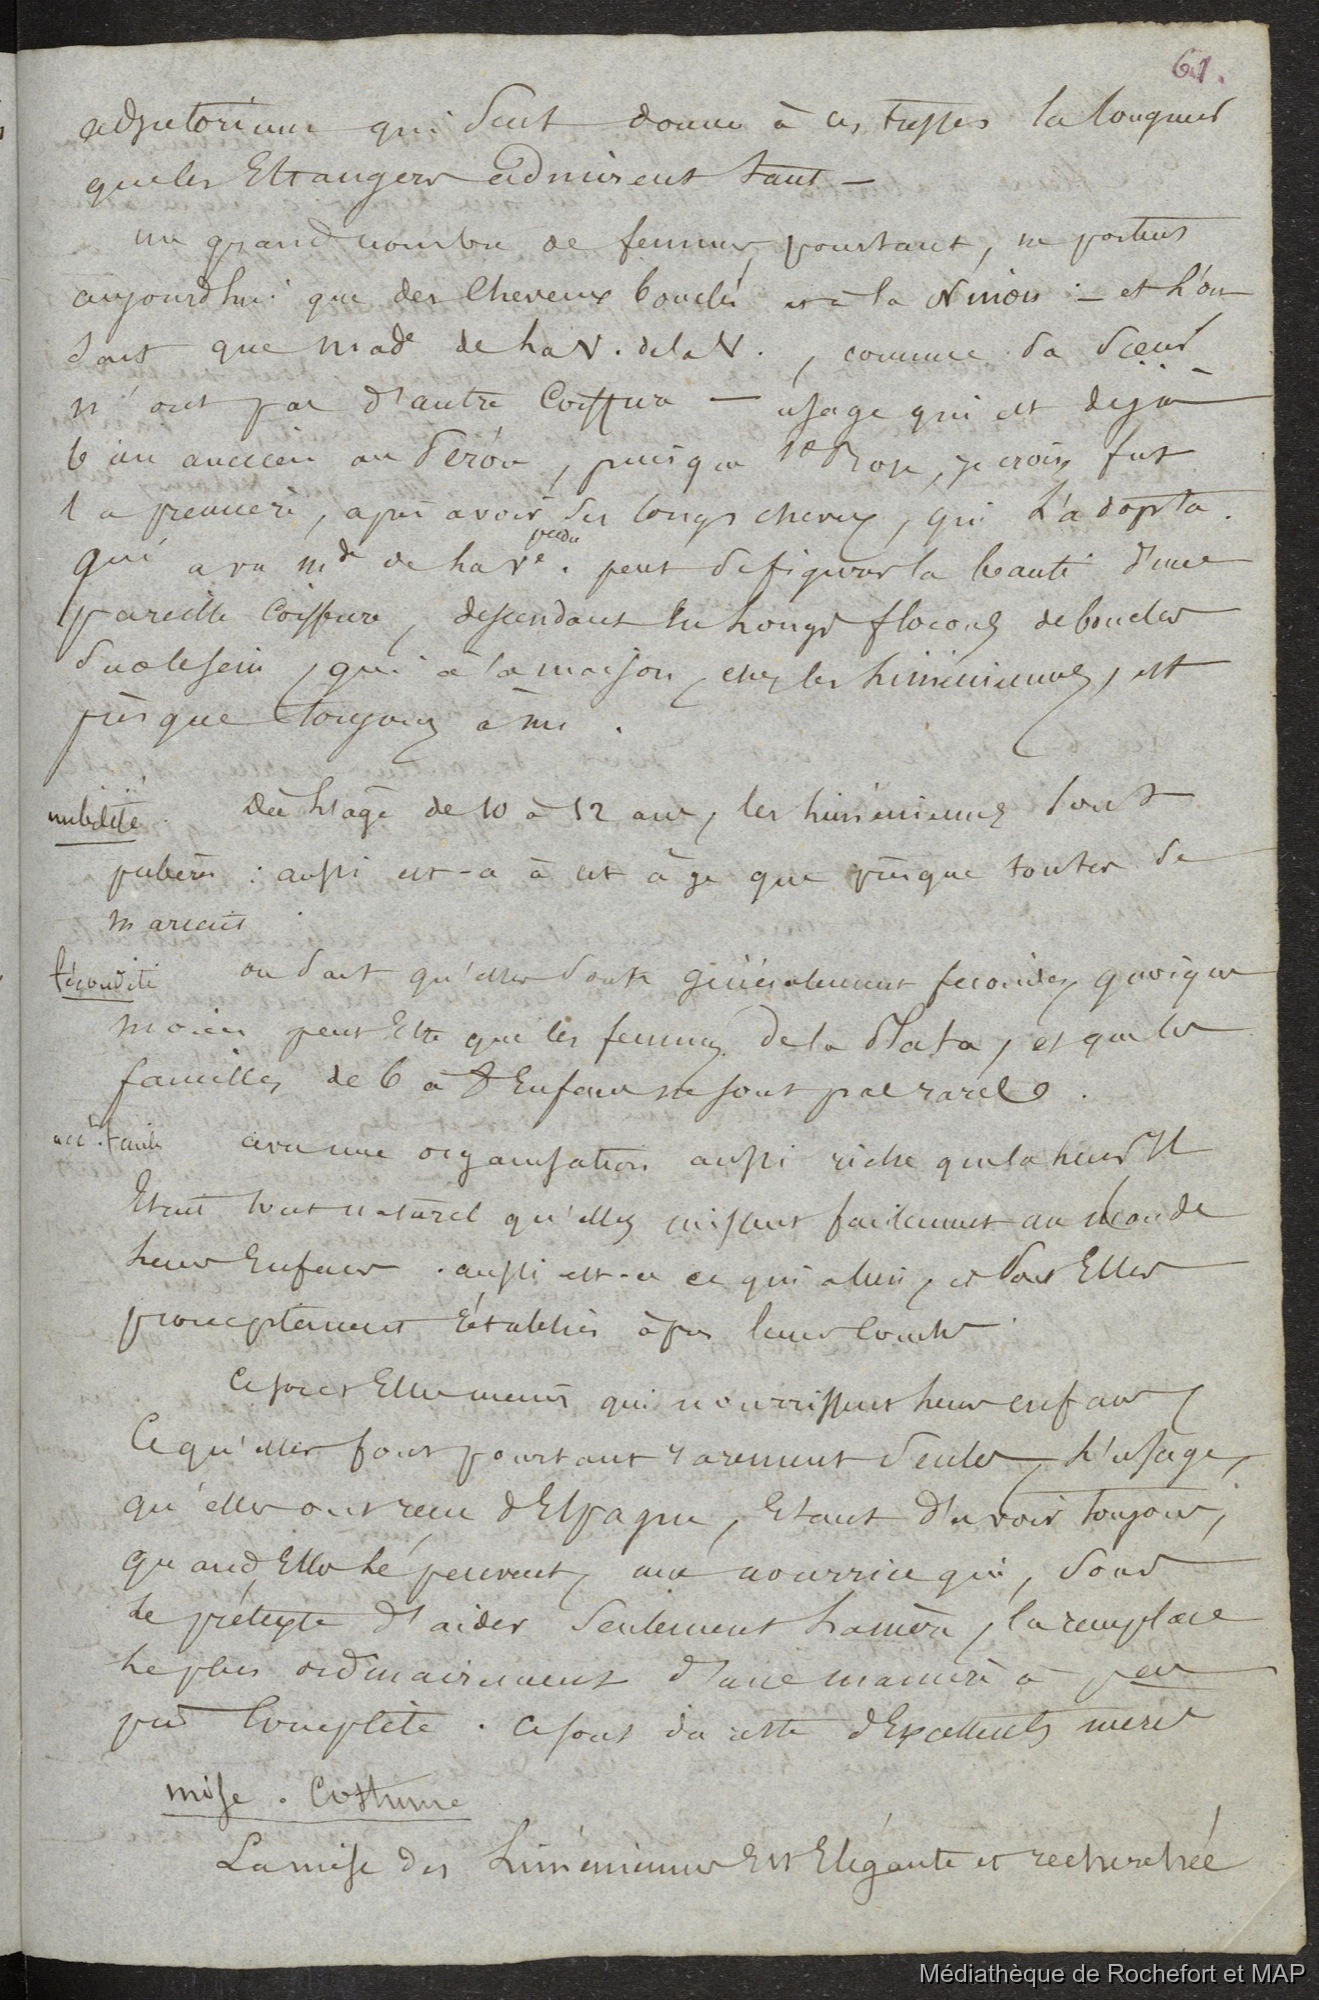 61.
adjutorium qui seul donne à ces tresses la longueur
que les Etrangers admirent tant —
un grand nombre de femmes, pourtant, ne portent
aujourd'hui que des Cheveux bouclés et à la Ninon : — et l'on
sait que Made de La V. de la V. , comme sa sœur
n'ont pas d'autre Coiffure — usage qui est dejà
bien ancien au Pérou, puisque Ste Rose, je crois, fut
la premiere, après avoir perdu ses longs cheveux, qui l'adopta.
qui a vu Mde de La Ve. peut se figurer la beauté d'une
pareille Coiffure, descendant en longs flocons de boucles
sur le sein, qui à la maison, chez les Liméniennes, est
presque toujours à nu.
nubilité. Dès l'age de 10 à 12 ans, les Liméniennes sont
pubères : aussi est-ce à cet âge que presque toutes se
marient.
fécondité on sait qu'elles sont généralement fecondes, quoique
moins peut Etre que les femmes de la Plata, et que les
familles de 6 à 8 Enfans ne sont pas rares.
acct. facile avec une organisation aussi riche que la leur Il
Etait tout naturel qu'elles missent facilement au Monde
leurs Enfans. aussi est-ce ce qui a lieu, et sont Elles
promptement rétablies après leurs couches.
Ce sont Elles memes qui nourrissent leurs enfans,
Ce qu'elles font pourtant rarement seules, L'usage,
qu'elles ont reçu d'Espagne, Etant d'avoir toujours,
quand Elles le peuvent, une nourrice qui, sous
le prétexte d'aider seulement la mère, la remplace
le plus ordinairement d'une manière à peu
près Complète. Ce sont du reste d'Excellentes meres
mise. Costume
La mise des Liméniennes Est Elégante et recherchée
Médiathèque de Rochefort et MAP